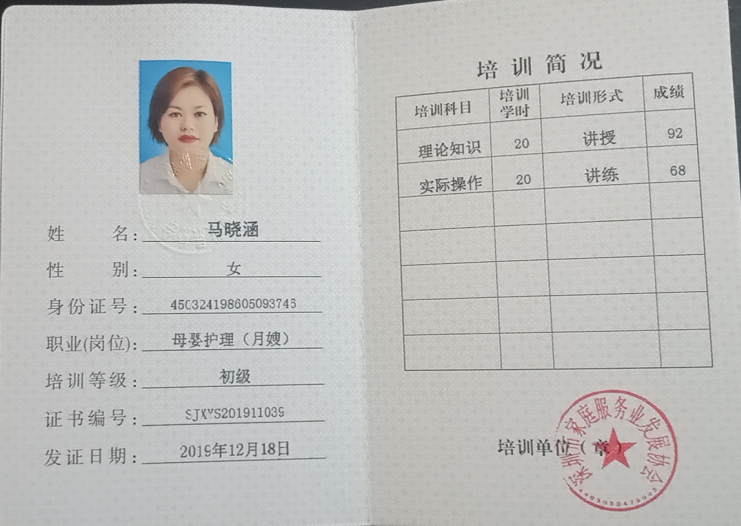 姓 名: 马晓涵
性 别: 女
身份证号: 450324198605093746
职业(岗位): 母婴护理（月嫂）
培训等级: 初级
证书编号: SJXYS201911039
发证日期: 2019年12月18日
培训简况
培训科目 培训学时 培训形式 成绩
理论知识 20 讲授 92
实际操作 20 讲练 68
培训单位（章）
深圳市家庭服务业发展协会